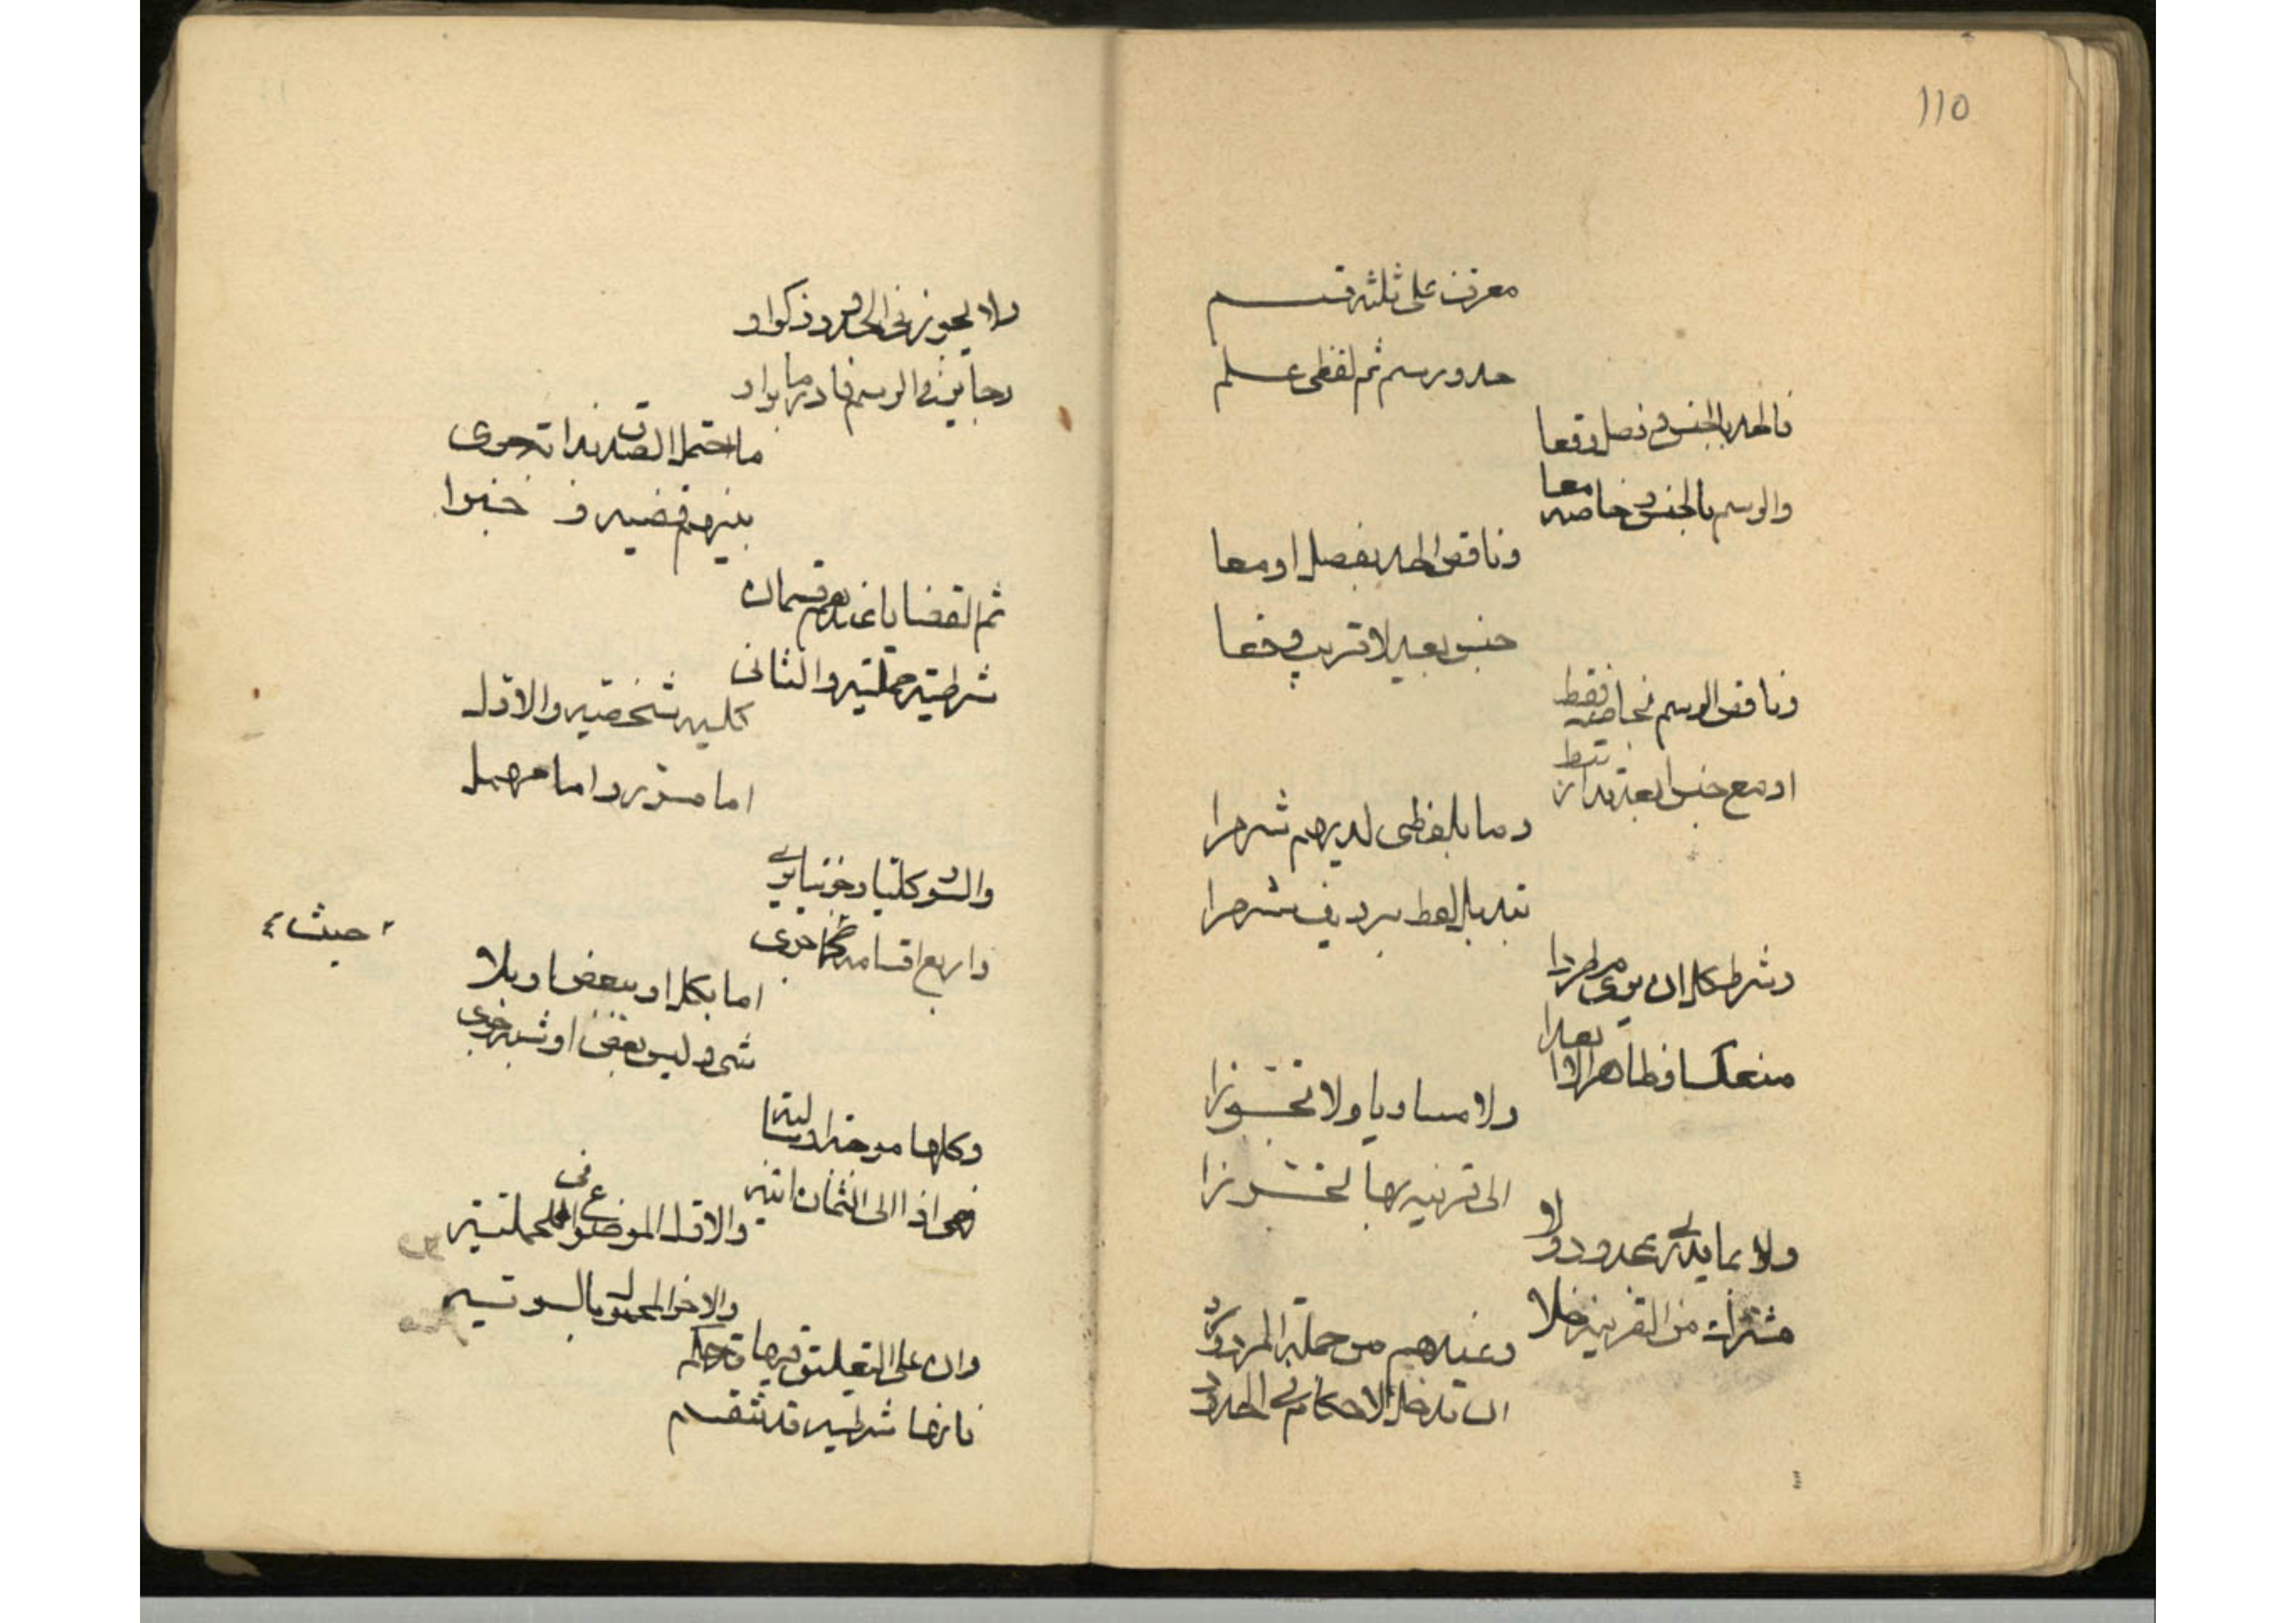 110
معرف على ثلثة قسم
حد ورسم ثم لفظي علم
فالحد بالجنس وفصل وقعا
والرسم بالجنس وخاصه معا
وناقص الحد بفصل او معا
جنس بعيد لا قريب وقعا
وناقص الرسم بخاصه فقط
او مع جنس ابعد قد ارتبط
وما بلفظي لديهم شهرا
تبديل لفظ برديف شهرا
وشرط كل ان يرى مطردا
منعكسا وظاهرا لا ابعدا
ولا مساويا ولا تجوزا
الى قرينه بها تحرزا
ولا بما يدرى بمحدود ولا
مشترك من القرينه خلا
وعندهم من جملة المردود
ان تدخل الاحكام في الحدود
ولا يجوز في الحدود ذكر او
وجائز في الرسم فادر ما رووا
ما احتمل الصدق لذاته جرى
بينهم قضيه و خبرا
ثم القضايا عندهم قسمان
شرطية حملية والثاني
كليه شخصيه والاول
اما مسور واما مهمل
والسور كليا وجزئيا يرى
واربع اقسامه حيث جرى
حيث
اما بكل او ببعض او بلا
شى وليس بعض او شبه جرى
وكلها موجبة وسالبة
فهي اذا الى الثمان ائبه
والاول الموضوع في الحمليه
والاخر المحمول بالسويه
وان على التعليق فيها قد حكم
فانها شرطيه وتنقسم